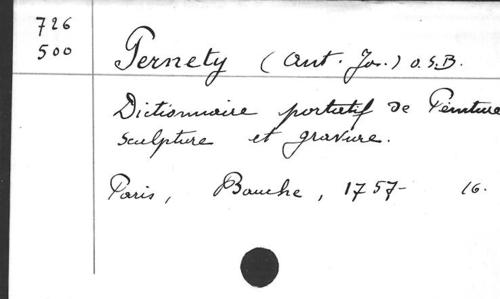 726
500
Pernety (Ant. Jos.) O.S.B.
Dictionnaire portatif de Peinture
sculpture et gravure.
Paris, Bauche, 1757- 16.